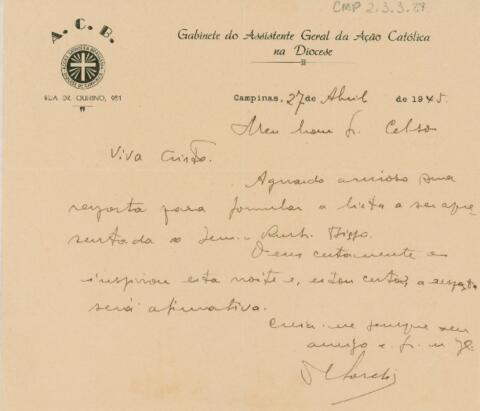 CMP 2.3.3.29
A. C. B.
Gabinete do Assistente Geral da Ação Católica
na Diocese
RUA DR. QUIRINO, 951
Campinas, 27 de Abril de 1945.
Meu bom Celso
Viva Cristo.
Aguardo ancioso sua
resposta para formular a lista a ser apre
sentada ao Bispo.
Deus certamente o
inspirou esta noite e, estou certo, a resposta
será afirmativa.
Creia-me sempre seu
amigo e